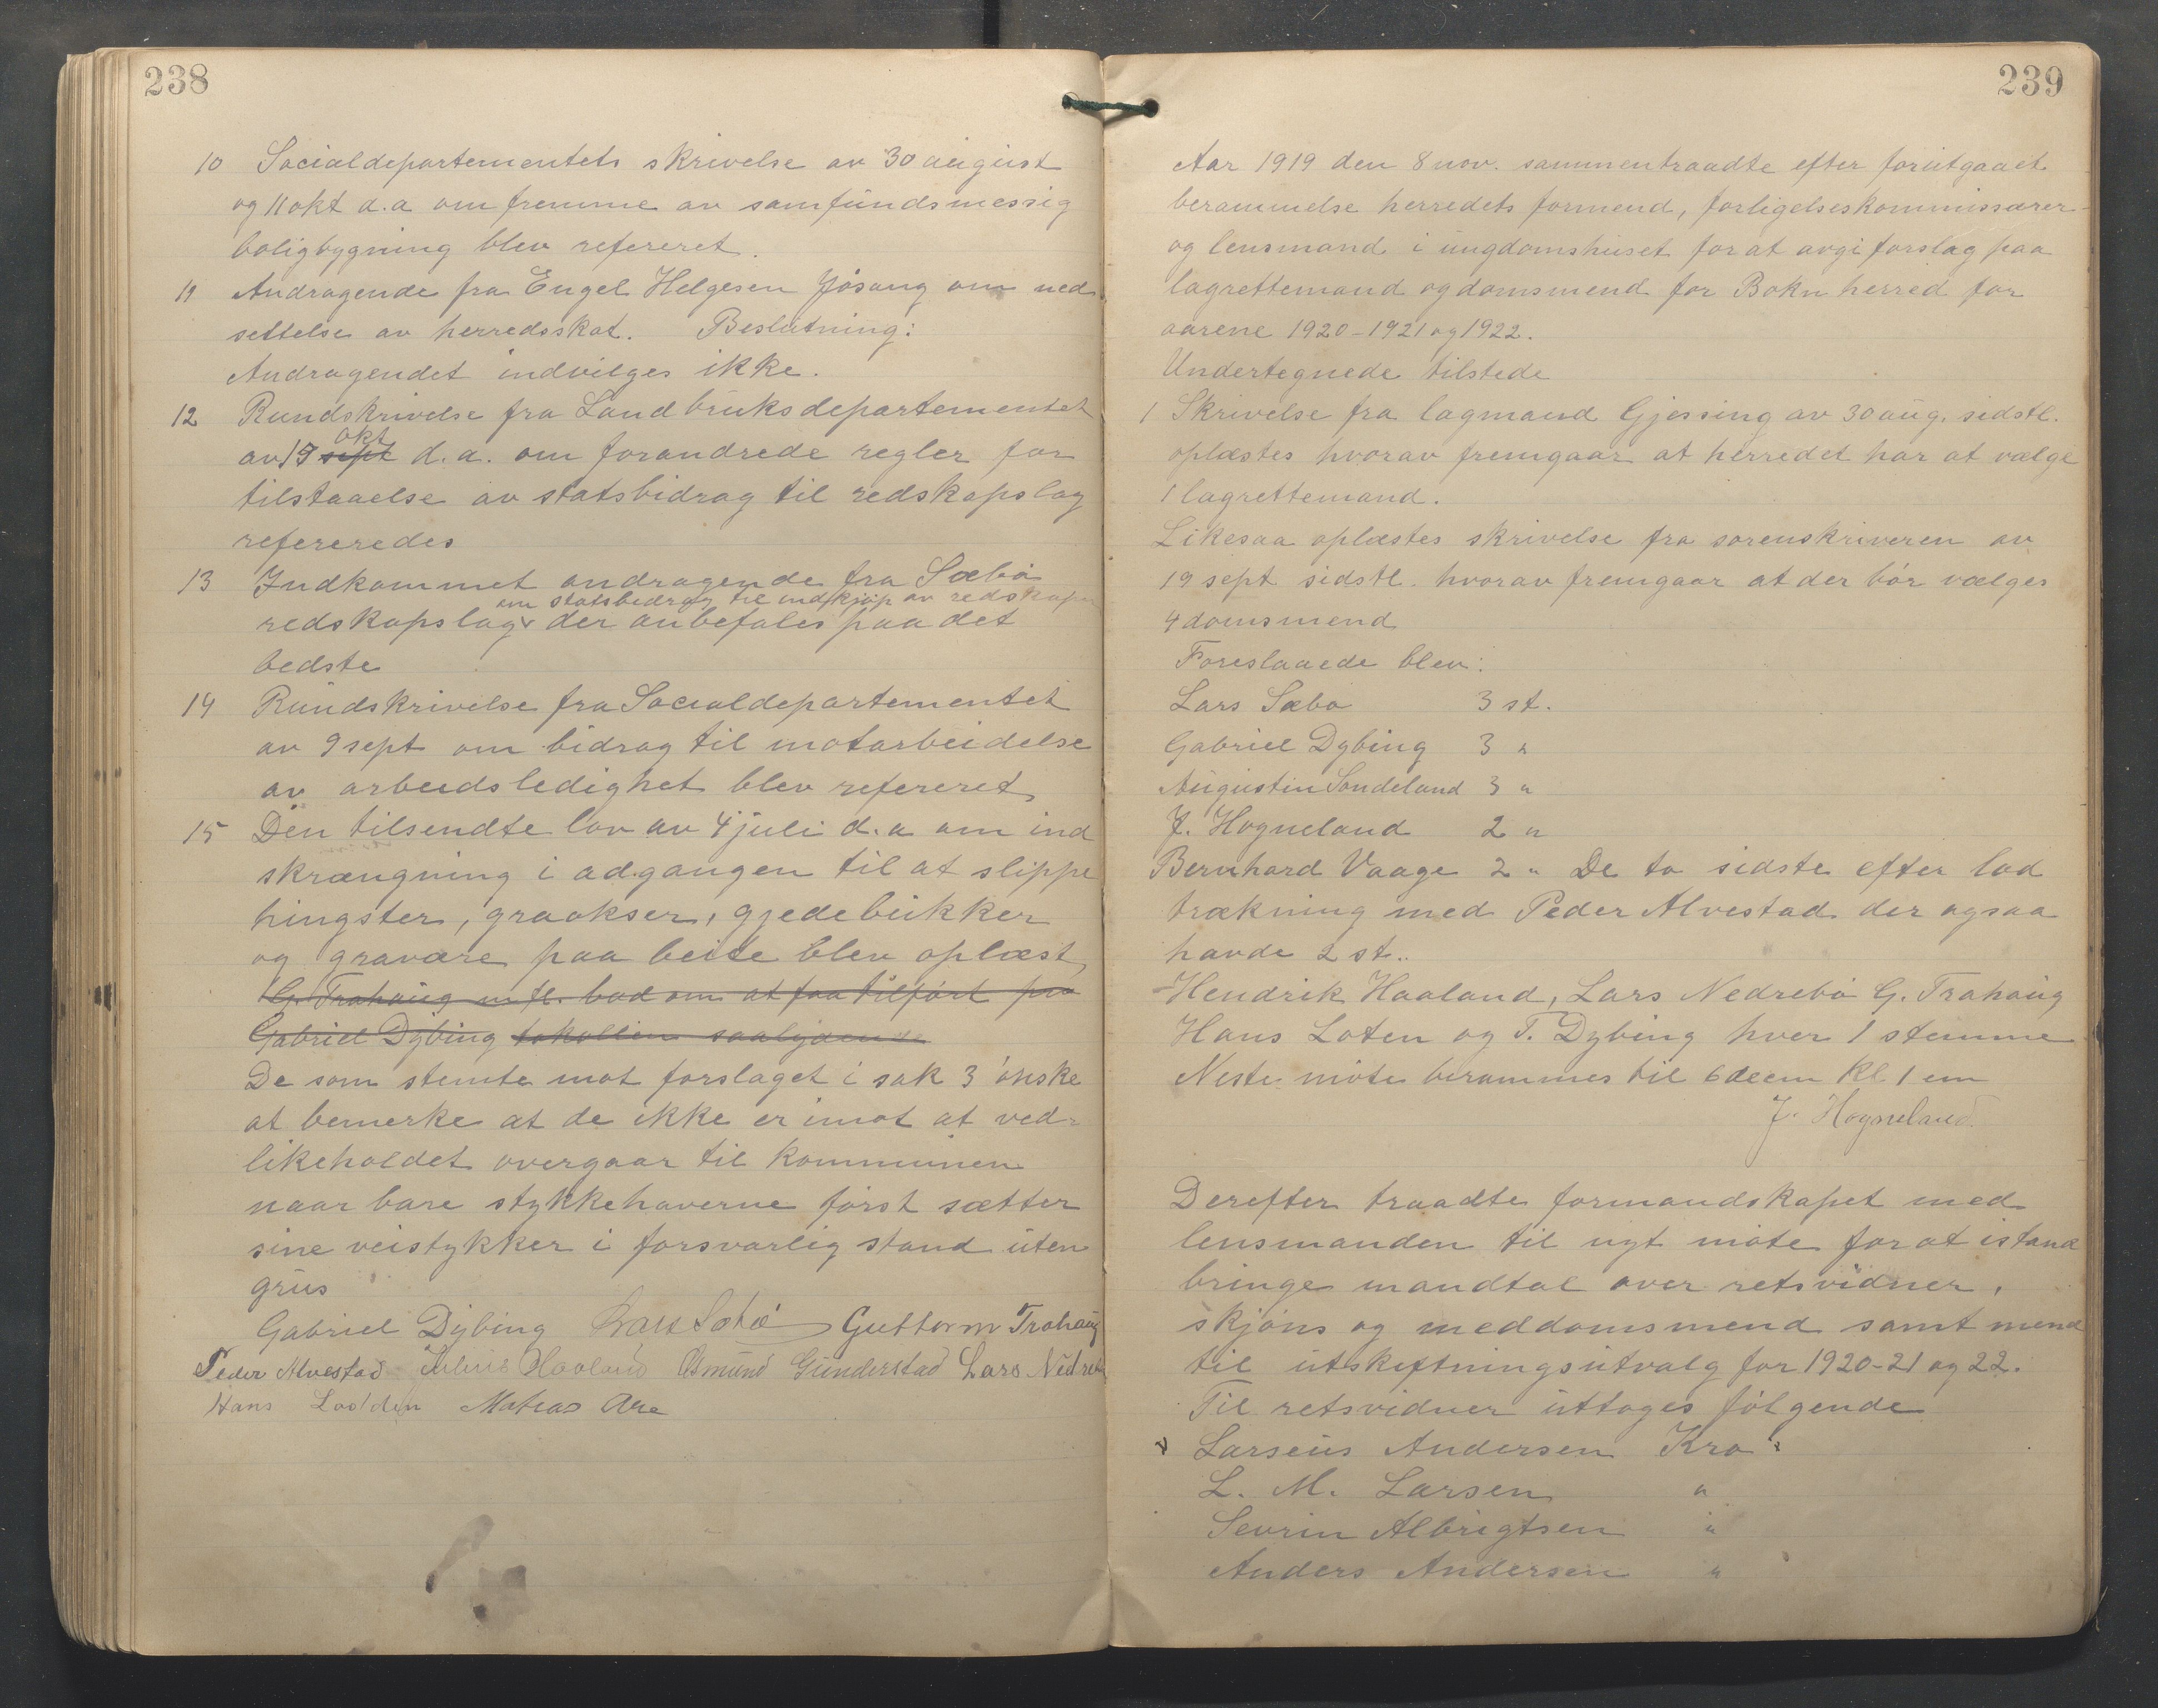 238
10 Socialdepartementets skrivelse av 30 august
og 11 okt d.a om fremme av samfundsmessig
boligbygning blev refereret.
11 Andragende fra Engel Helgesen Jøsang om ned
settelse av herredsskat. Beslutning:
Andragendet indvilges ikke.
12 Rundskrivelse fra Landbruksdepartementet
okt
av 19 sept d.a. om forandrede regler for
tilstaaelse av statsbidrag til redskapslag
refereredes
13 Indkommet andragende fra Sæbø
om statsbidrag til indkjøp av redskaper
redskapslag der anbefales paa det
bedste
14 Rundskrivelse fra Socialdepartementet
av 9 sept om bidrag til motarbeidelse
av arbeidsledighet blev refereret
15 Den tilsendte lov av 4 juli d.a om ind
skrængning i adgangen til at slippe
hingster, graokser, gjedebukker
og gravære paa beite blev oplæst
G. Trohaug m.fl. bad om at faa tilført pro
Gabriel Dybing tokollen saalydende
De som stemte mot forslaget i sak 3 ønske
at bemerke at de ikke er imot at ved-
likeholdet overgaar til kommunen
naar bare stykkehaverne først sætter
sine veistykker i forsvarlig stand uten
grus
Gabriel Dybing Lars Sæbø Guttorm Trohaug
Peder Alvestad Julius Haaland Osmund Gunderstad Lars Nedrebø
Hans Lodden Matias Are
239
Aar 1919 den 8 nov. sammentraadte efter forutgaaet
berammelse herredets formend, forligelseskommissærer
og lensmand i ungdomshuset for at avgi forslag paa
lagrettemand og domsmend for Bokn herred for
aarene 1920-1921 og 1922.
Undertegnede tilstede
1 Skrivelse fra lagmand Gjessing av 30 aug. sidstl.
oplæstes hvorav fremgaar at herredet har at vælge
1 lagrettemand.
Likesaa oplæstes skrivelse fra sorenskriveren av
19 sept sidstl. hvorav fremgaar at der bør vælges
4 domsmend
Foreslaaede blev:
Lars Sæbø 3 st.
Gabriel Dybing 3 "
Augustin Sondeland 3 "
J. Hogneland 2 "
Bernhard Vaage 2 " De to sidste efter lod
trækning med Peder Alvestad der ogsaa
havde 2 st..
Hendrik Haaland, Lars Nedrebø G. Trohaug
Hans Loten og T. Dybing hver 1 stemme
Neste møte berammes til 6 decem kl. 1 em
J. Hogneland
Derefter traadte formandskapet med
lensmanden til nyt møte for at istand
bringe mandtal over retsvidner,
skjøns og meddomsmend samt mend
til utskiftningsutvalg for 1920-21 og 22.
Til retsvidner uttoges følgende
Larseus Andersen Kro
L. M. Larsen "
Sevrin Albrigtsen "
Anders Andersen "